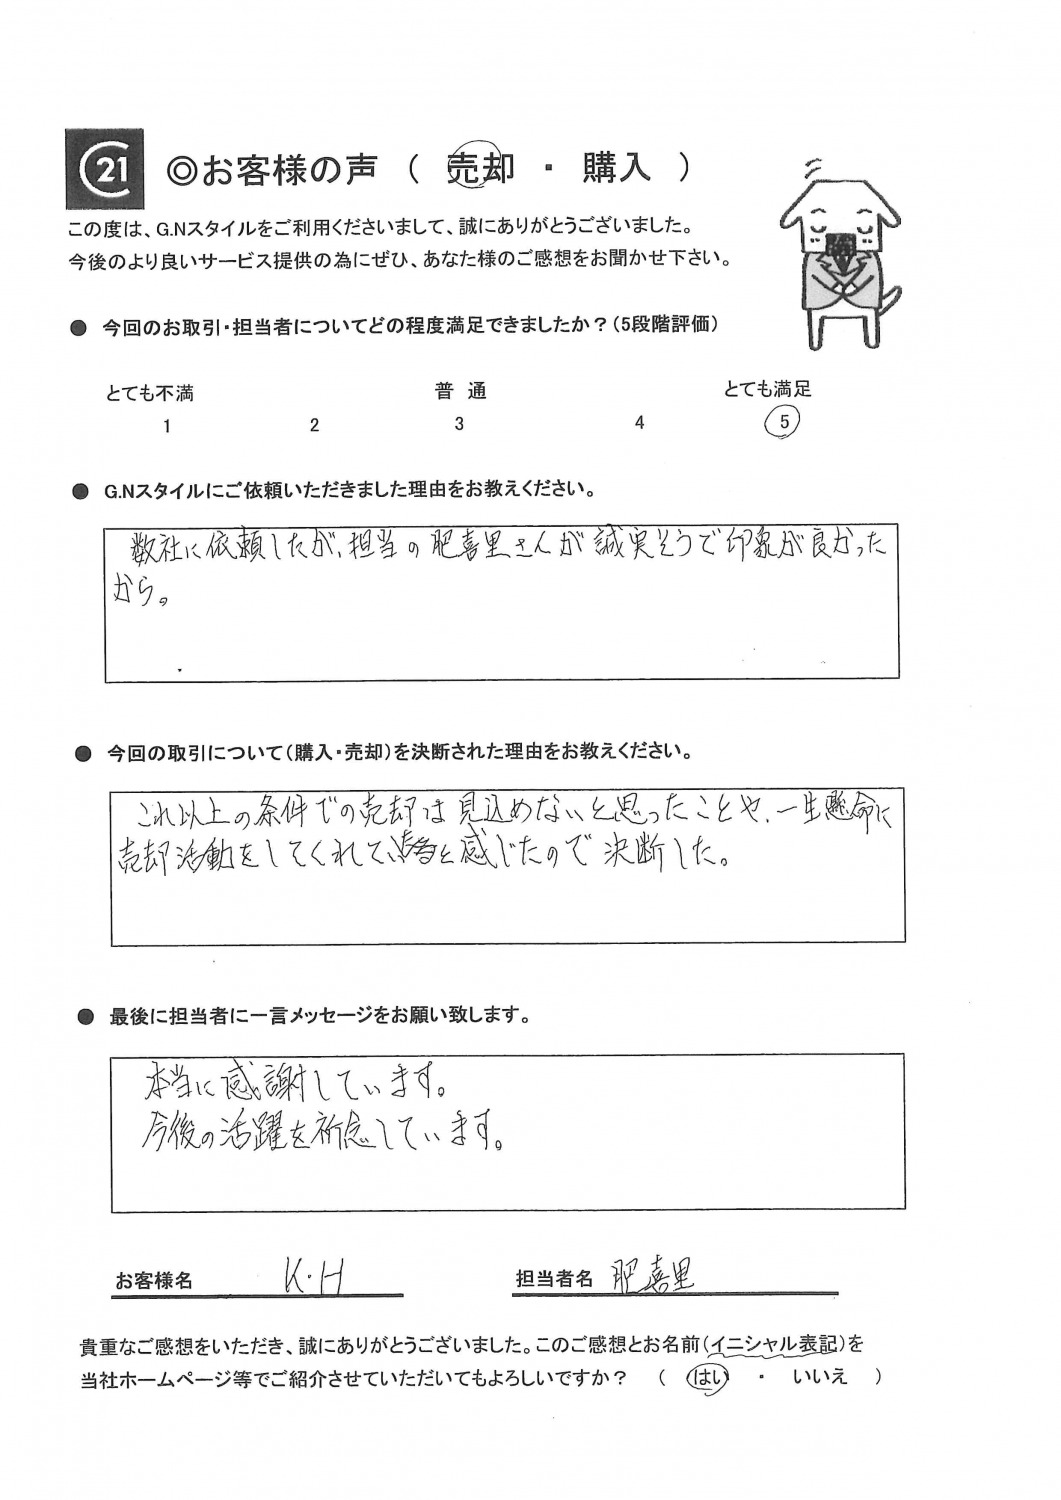 C21 ◎お客様の声 （ 売却 ・ 購入 ）
この度は、G.Nスタイルをご利用くださいまして、誠にありがとうございました。
今後のより良いサービス提供の為にぜひ、あなた様のご感想をお聞かせ下さい。
● 今回のお取引・担当者についてどの程度満足できましたか？（5段階評価）
とても不満 普 通 とても満足
1 2 3 4 5
● G.Nスタイルにご依頼いただきました理由をお教えください。
数社に依頼したが、担当の肥喜里さんが誠実そうで印象が良かった
から。
● 今回の取引について（購入・売却）を決断された理由をお教えください。
これ以上の条件での売却は見込めないと思ったことや、一生懸命に
売却活動をしてくれていると感じたので決断した。
● 最後に担当者に一言メッセージをお願い致します。
本当に感謝しています。
今後の活躍を祈念しています。
お客様名 K・H 担当者名 肥喜里
貴重なご感想をいただき、誠にありがとうございました。このご感想とお名前（イニシャル表記）を
当社ホームページ等でご紹介させていただいてもよろしいですか？ （ はい ・ いいえ ）